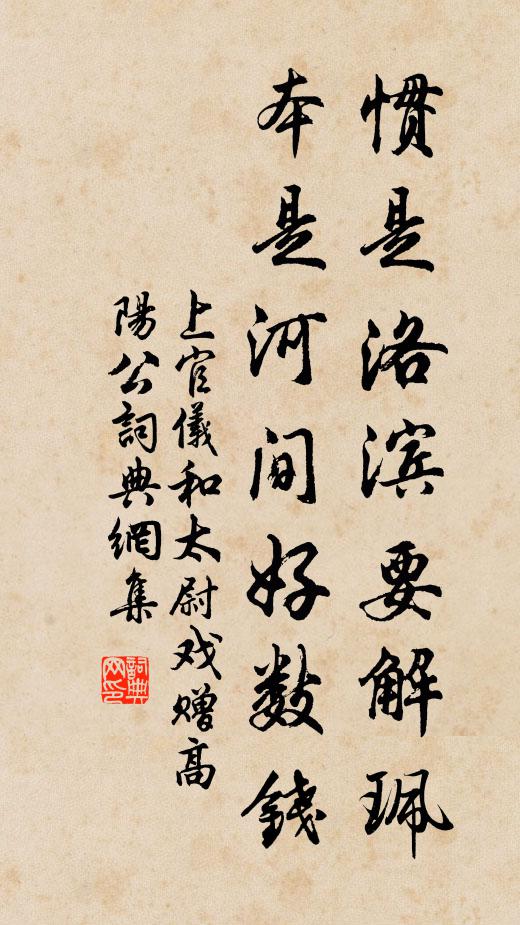 惯是洛滨要解珮
本是河间好数钱
上官儀和太尉戏赠高
陽公詞典網集
詞典网印